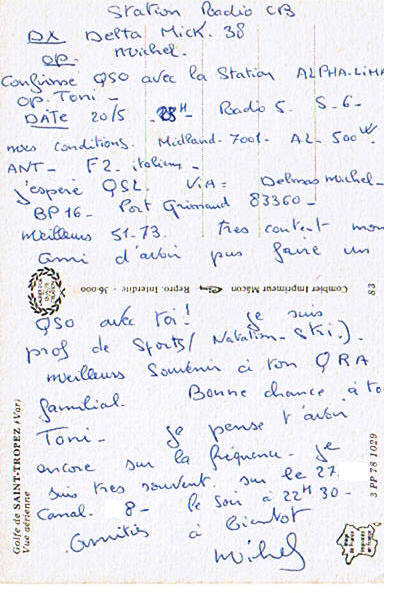 Station Radio CB
DX Delta Mick. 38
OP. Michel.
Confirme QSO avec la Station ALPHA-LIMA
OP. Toni -
DATE 20/5 - 28H - Radio 5. S-6-
mes conditions. Midland-7001- AL-500W
ANT- F2- italien -
j'espere QSL. ViA= Delmas Michel-
BP16- Port Grimaud 83360-
Meilleurs 51-73. tres content mon
ami d'avoir pus faire un
Combier Imprimeur Mâcon Repro. Interdite - 36.000 83
QSO avec toi! je suis
prof de Sports/ Natation-Ski.).
meilleurs Souvenir à ton QRA
familial. Bonne chance à to
Toni- je pense t'avoir
encore sur la fréquence- je
suis tres souvent sur le 27.
Canal- 8- le soir à 22H30-
Amitiés à bientot
Michel
Golfe de SAINT-TROPEZ (Var)
Vue aérienne
3 PP 78 1029